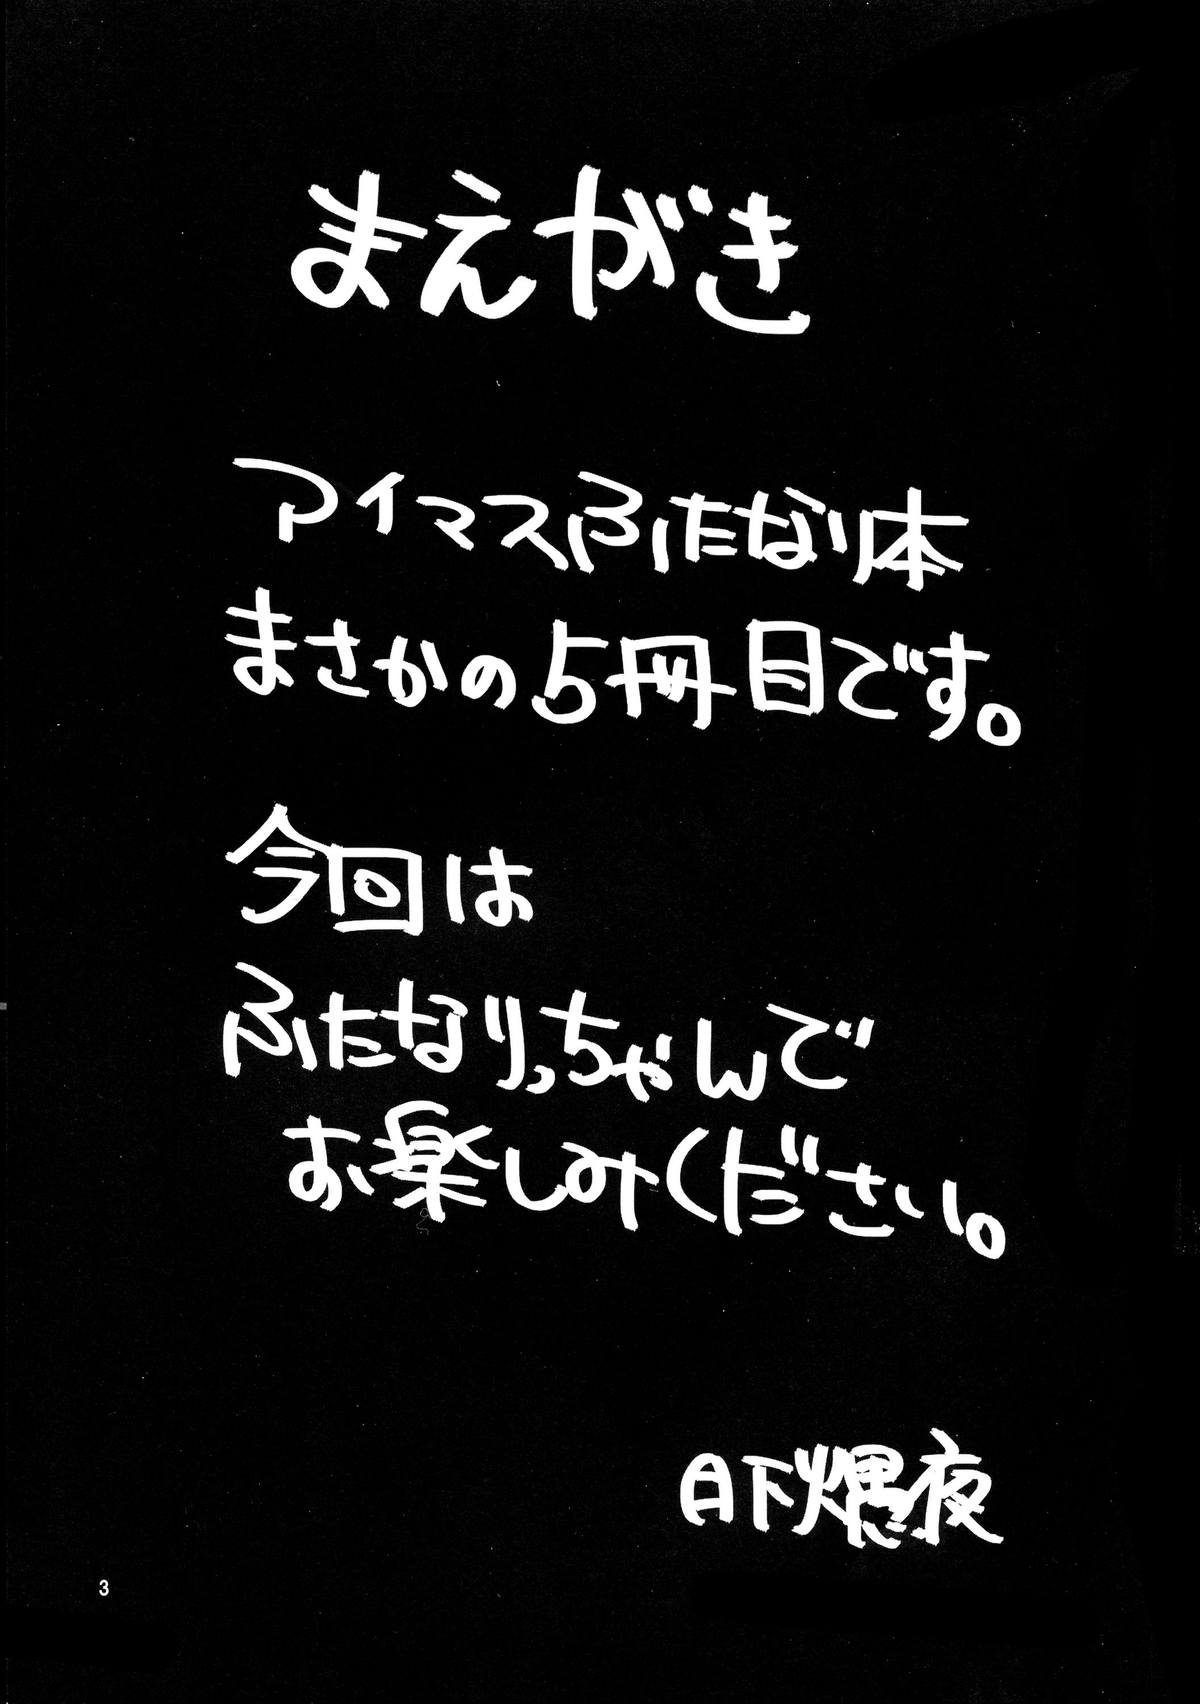 まえがき
アイマスふたなり本
まさかの5冊目です。
今回は
ふたなりっちゃんで
お楽しみください。
日下
3